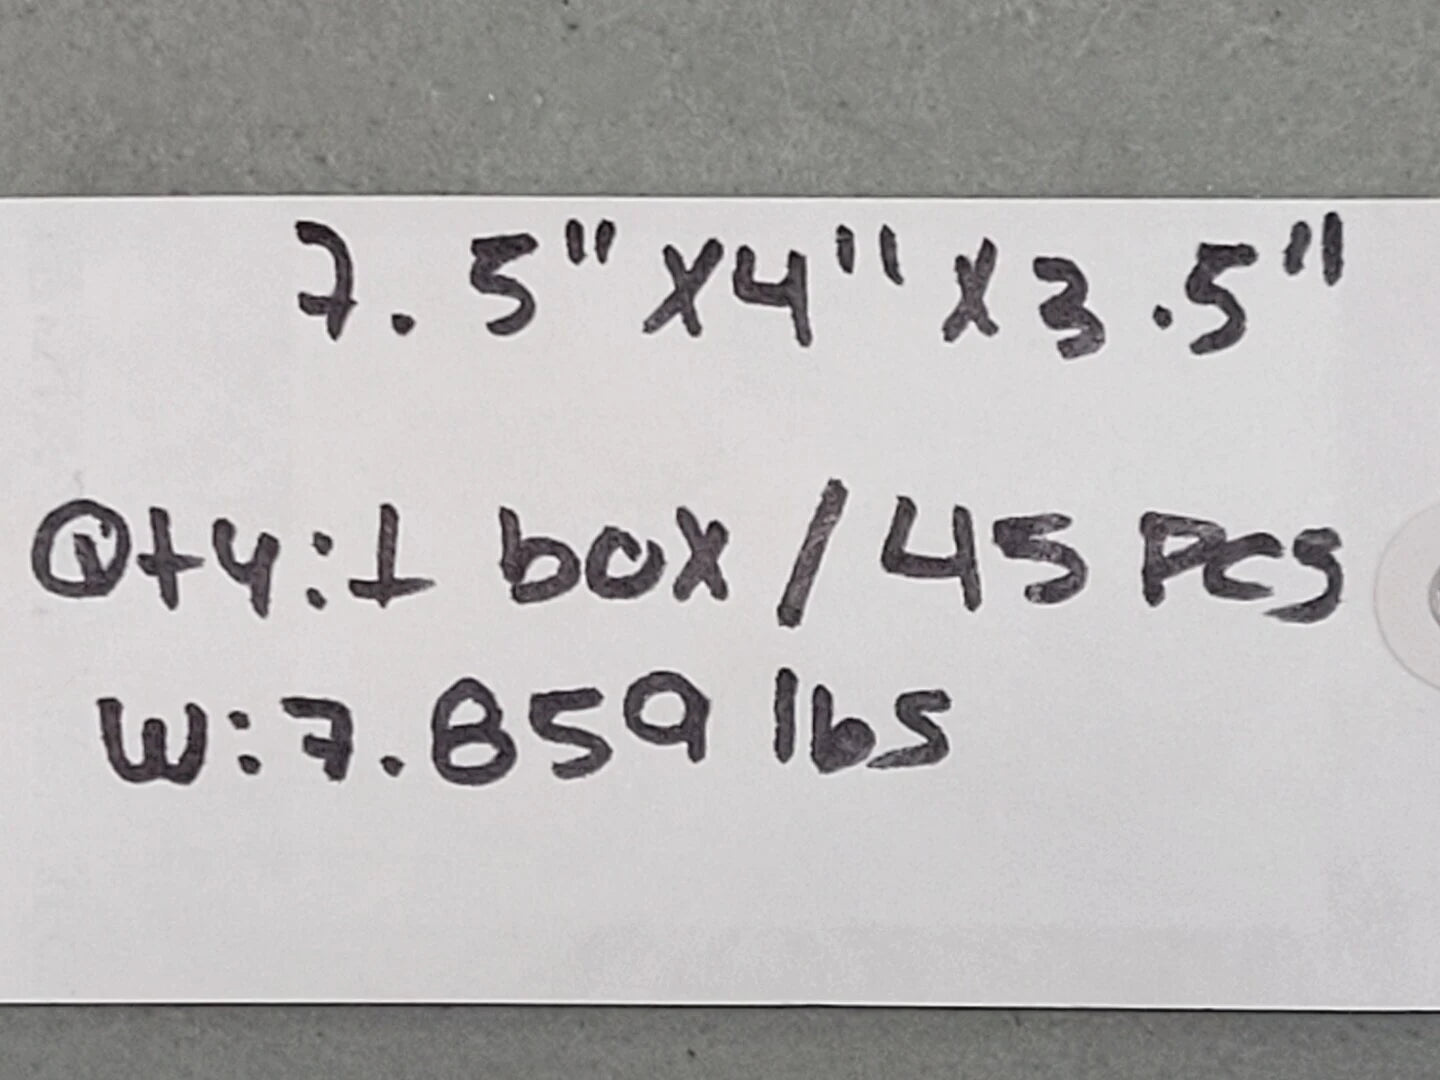 7.5" x4" x3.5"
Qty:1 box / 45 Pcs
W:7.859 lbs